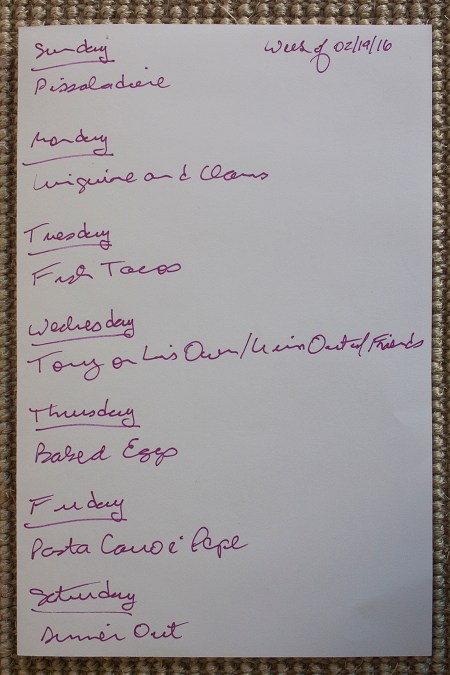 Sunday
Week of 02/19/16
Pissaladiere
Monday
Linguine and Clams
Tuesday
Fish Tacos
Wednesday
Tony on his Own/ Out w/ Friends
Thursday
Baked Eggs
Friday
Pasta Cacio e Pepe
Saturday
Dinner Out